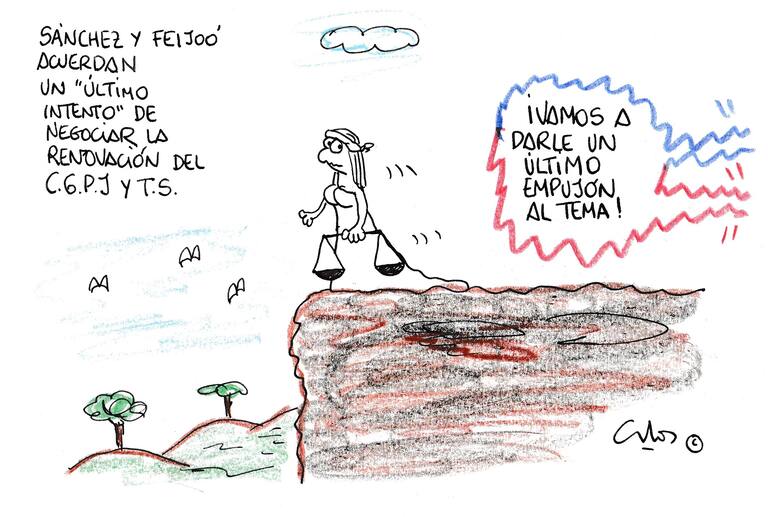 SÁNCHEZ Y FEIJOÓ
ACUERDAN
UN "ÚLTIMO
INTENTO" DE
NEGOCIAR LA
RENOVACIÓN DEL
C.G.P.J Y T.S.
¡VAMOS A
DARLE UN
ÚLTIMO
EMPUJÓN
AL TEMA!
©